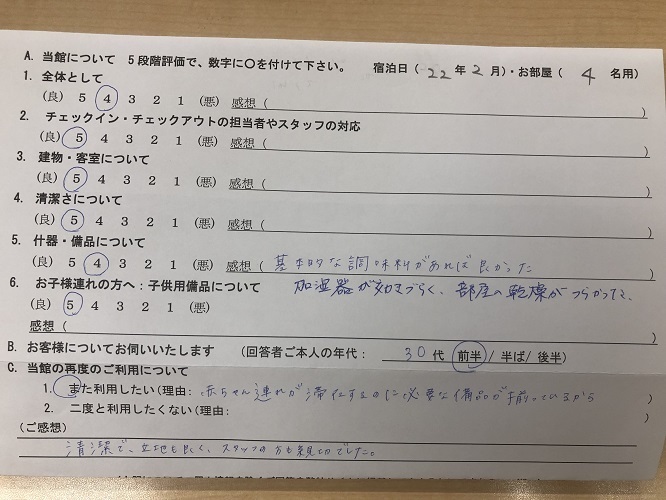 A. 当館について 5段階評価で、数字に〇を付けて下さい。 宿泊日(22年2月)・お部屋(4名用)
1. 全体として
(良) 5 4 3 2 1 (悪) 感想( )
2. チェックイン・チェックアウトの担当者やスタッフの対応
(良) 5 4 3 2 1 (悪) 感想( )
3. 建物・客室について
(良) 5 4 3 2 1 (悪) 感想( )
4. 清潔さについて
(良) 5 4 3 2 1 (悪) 感想( )
5. 什器・備品について
(良) 5 4 3 2 1 (悪) 感想(基本的な調味料があれば良かった )
6. お子様連れの方へ:子供用備品について 加湿器が効きづらく、部屋の乾燥がつらかった、
(良) 5 4 3 2 1 (悪)
感想( )
B. お客様についてお伺いいたします (回答者ご本人の年代: 30代 前半/半ば/後半)
C. 当館の再度のご利用について
1. また利用したい(理由:赤ちゃん連れが滞在するのに必要な備品が揃っているから )
2. 二度と利用したくない(理由: )
(ご感想)
清潔で、立地も良く、スタッフの方も親切でした。